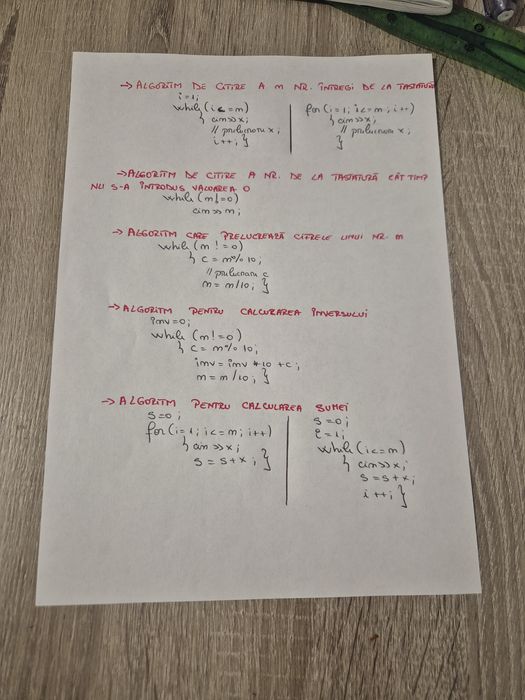 → ALGORITM DE CITIRE A m NR. ÎNTREGI DE LA TASTATURĂ
i=1;
while (i<=m)
{ cin>>x;
// prelucrare x;
i++; }
for (i=1; i<=m; i++)
{ cin>>x;
// prelucrare x;
}
→ ALGORITM DE CITIRE A NR. DE LA TASTATURĂ CÂT TIMP
NU S-A INTRODUS VALOAREA 0
while (m!=0)
cin>>m;
→ ALGORITM CARE PRELUCREAZĂ CIFRELE UNUI NR. m
while (m!=0)
{ c=m%10;
// prelucrare c
m=m/10; }
→ ALGORITM PENTRU CALCULAREA INVERSULUI
inv=0;
while (m!=0)
{ c=m%10;
inv=inv*10+c;
m=m/10; }
→ ALGORITM PENTRU CALCULAREA SUMEI
s=0;
for (i=1; i<=m; i++)
{ cin>>x;
s=s+x; }
s=0;
i=1;
while (i<=m)
{ cin>>x;
s=s+x;
i++; }